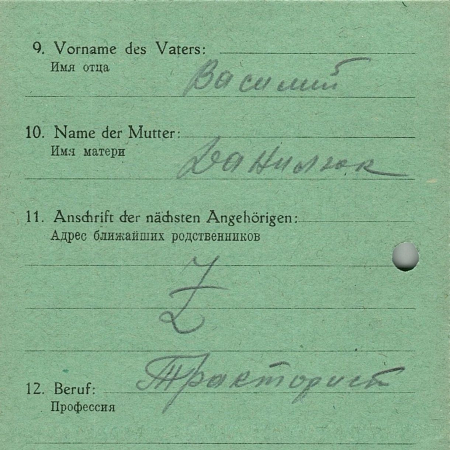 9. Vorname des Vaters:
Имя отца
Василий
10. Name der Mutter:
Имя матери
Данилюк
11. Anschrift der nächsten Angehörigen:
Адрес ближайших родственников
Z
12. Beruf: Тракторист
Профессия